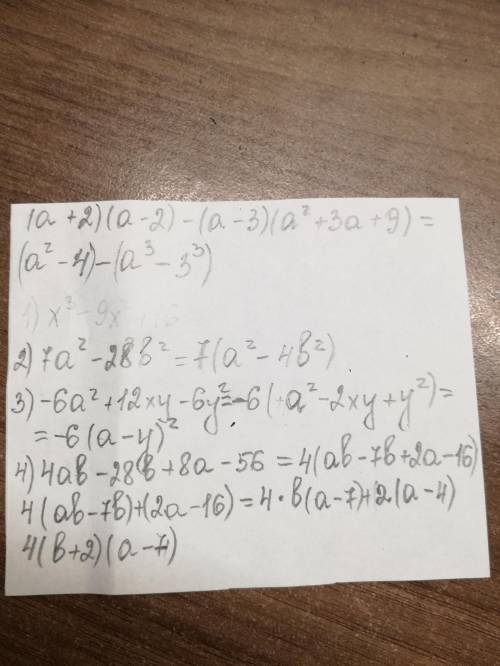 (a+2)(a-2)-(a-3)(a²+3a+9)=
(a²-4)-(a³-3³)
1) x³-9x
2) 7a²-28b²=7(a²-4b²)
3) -6a²+12xy-6y²=-6(+a²-2xy+y²)=
=-6(a-y)²
4) 4ab-28b+8a-56=4(ab-7b+2a-16)
4(ab-7b)+(2a-16)=4·b(a-7)+2(a-4)
4(b+2)(a-7)